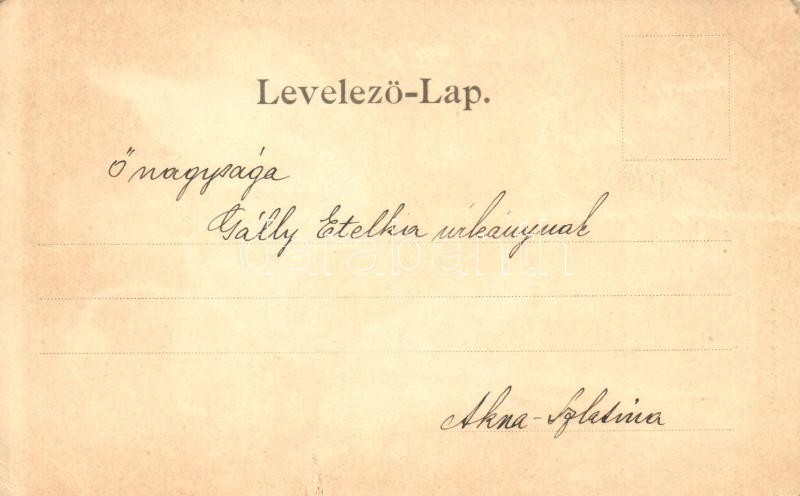 Levelezö-Lap.
Ő nagysága
Gálly Etelka úrleánynak
darabanth
Akna-Szlatina